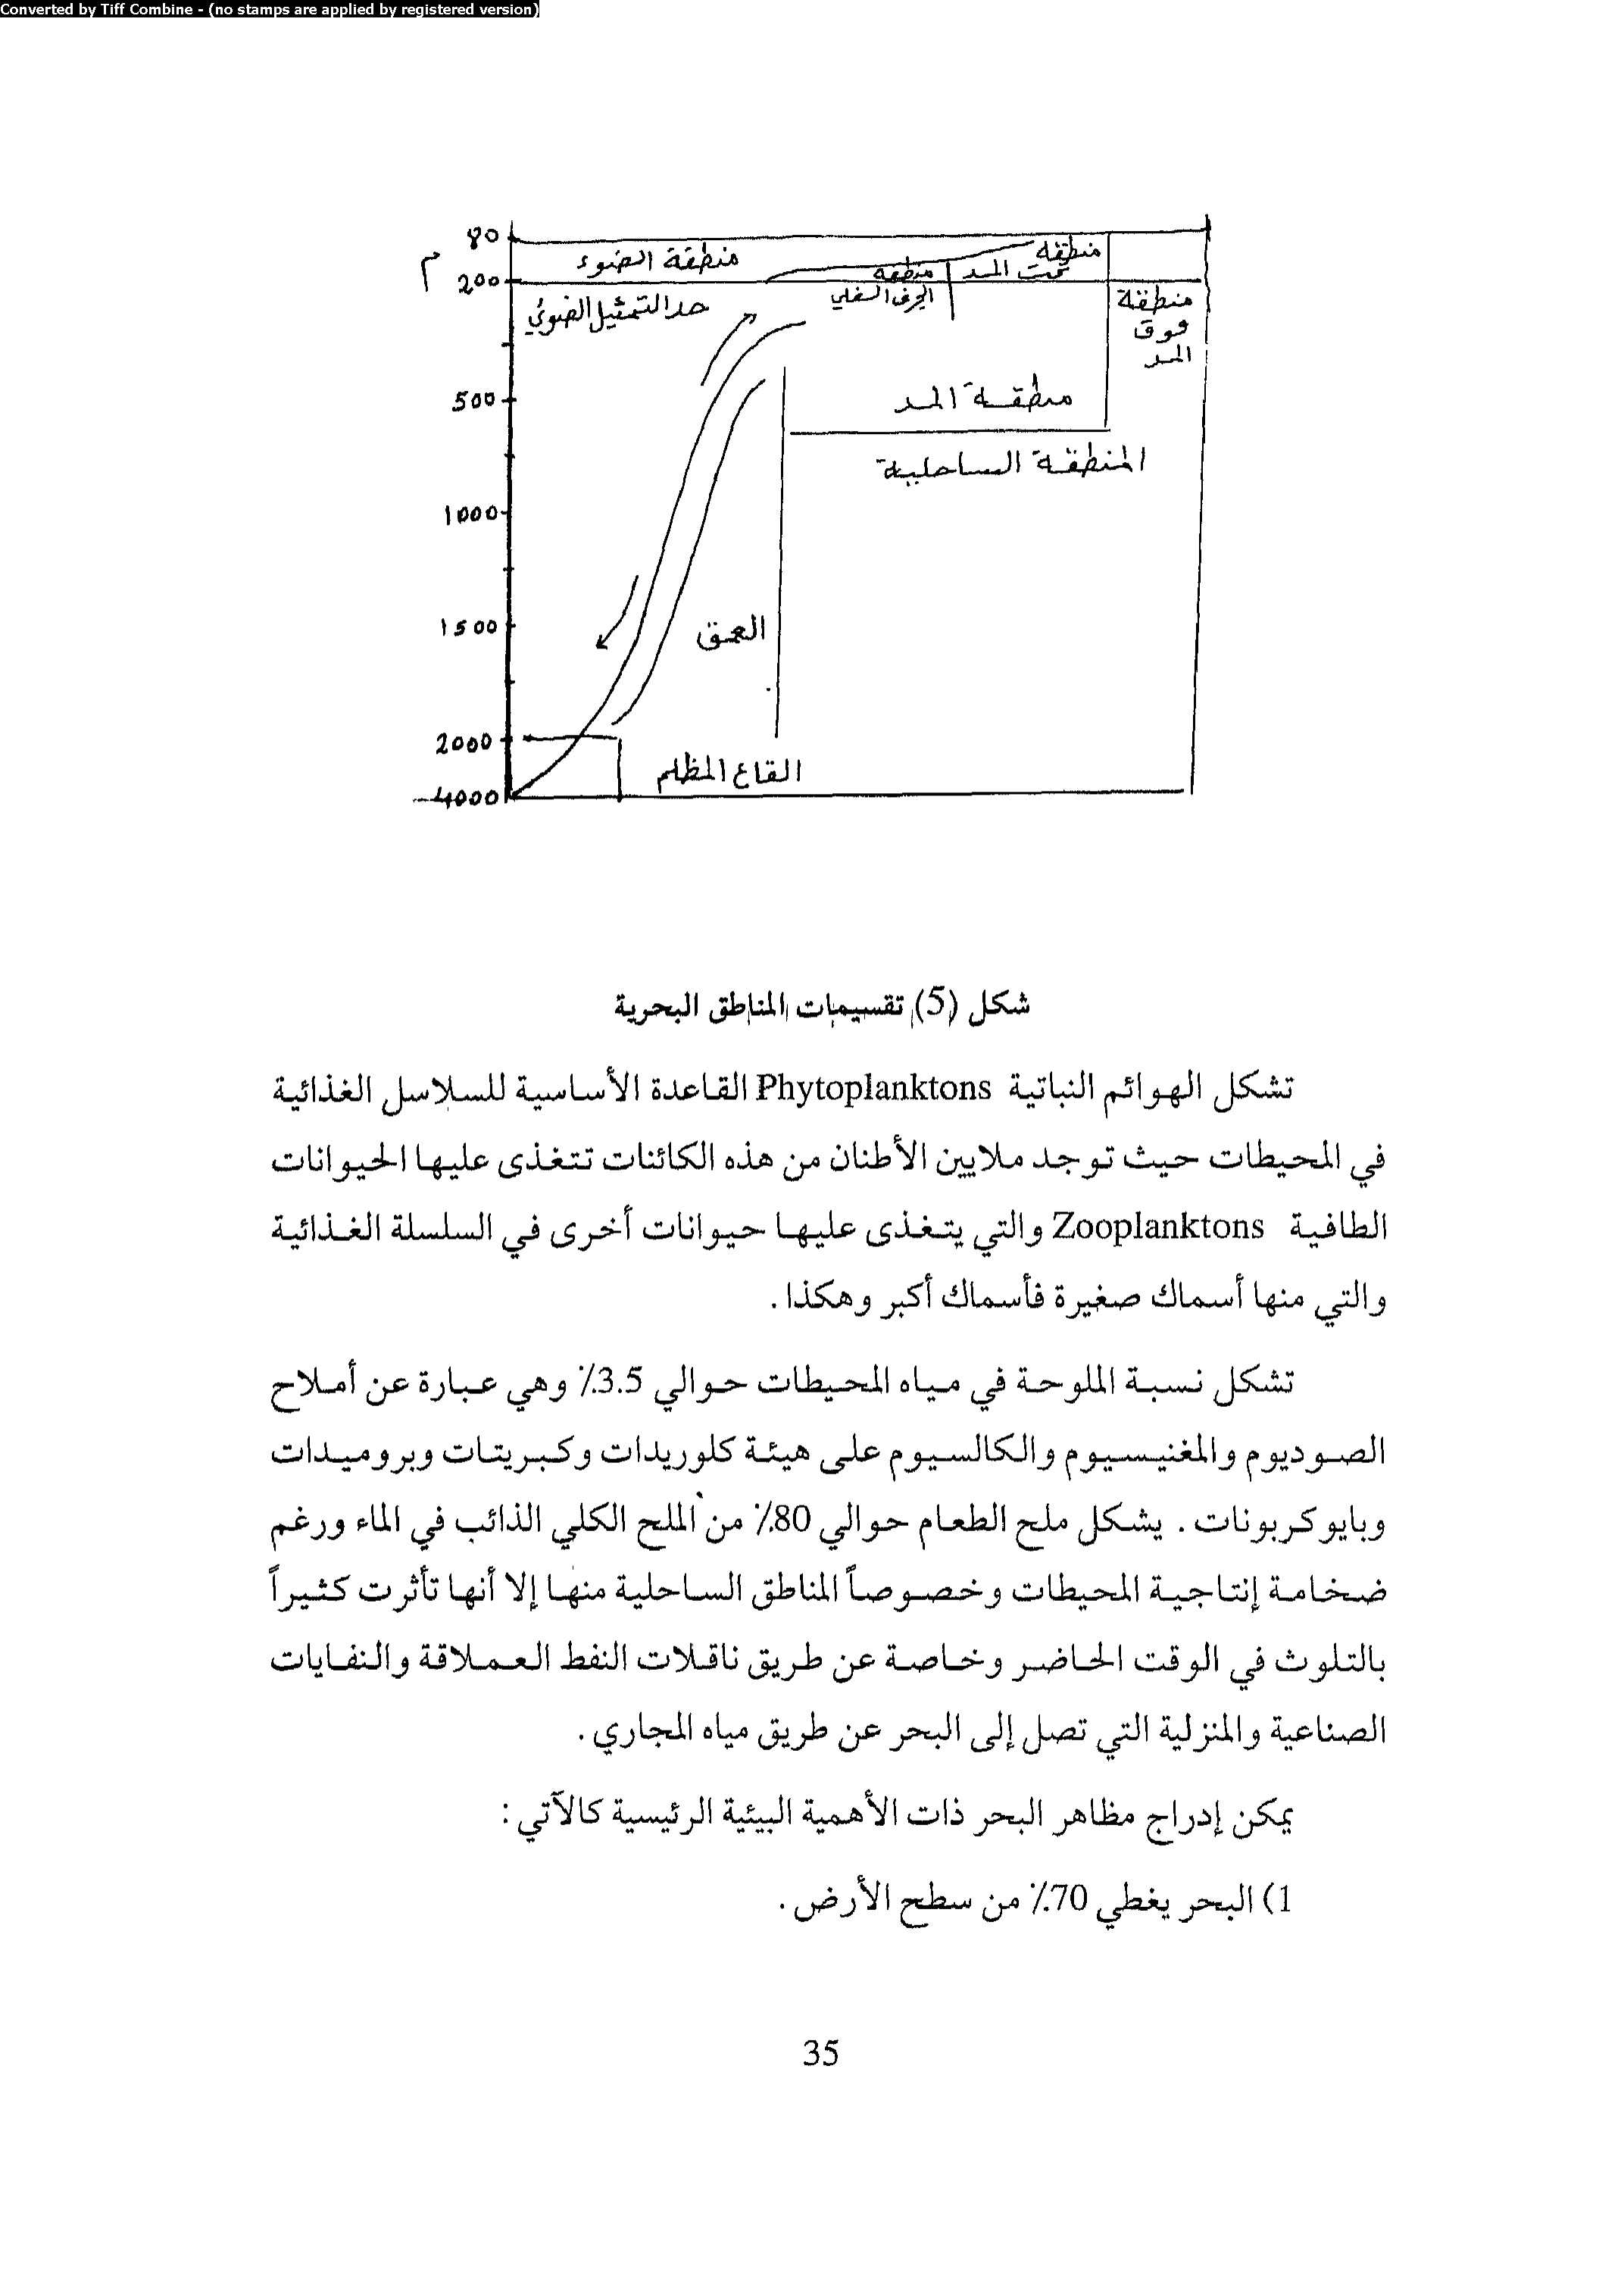 Converted by Tiff Combine - (no stamps are applied by registered version)
80
م
200
500
1000
1500
2000
4000
منطقة الضوء
حد التمثيل الضوئي
منطقة
تحت المد
منطقة
الجرف السفلي
منطقة
فوق
المد
منطقة المد
المنطقة الساحلية
العمق
القاع المظلم
شكل (5) تقسيمات المناطق البحرية
تشكل الهوائم النباتية Phytoplanktons القاعدة الأساسية للسلاسل الغذائية
في المحيطات حيث توجد ملايين الأطنان من هذه الكائنات تتغذى عليها الحيوانات
الطافية Zooplanktons والتي يتغذى عليها حيوانات أخرى في السلسلة الغذائية
والتي منها أسماك صغيرة فأسماك أكبر وهكذا .
تشكل نسبة الملوحة في مياه المحيطات حوالي 3.5٪ وهي عبارة عن أملاح
الصوديوم والمغنيسيوم والكالسيوم على هيئة كلوريدات وكبريتات وبروميدات
وبايوكربونات . يشكل ملح الطعام حوالي 80٪ من الملح الكلي الذائب في الماء ورغم
ضخامة إنتاجية المحيطات وخصوصاً المناطق الساحلية منها إلا أنها تأثرت كثيراً
بالتلوث في الوقت الحاضر وخاصة عن طريق ناقلات النفط العملاقة والنفايات
الصناعية والمنزلية التي تصل إلى البحر عن طريق مياه المجاري .
يمكن إدراج مظاهر البحر ذات الأهمية البيئية الرئيسية كالآتي :
1) البحر يغطي 70٪ من سطح الأرض .
35